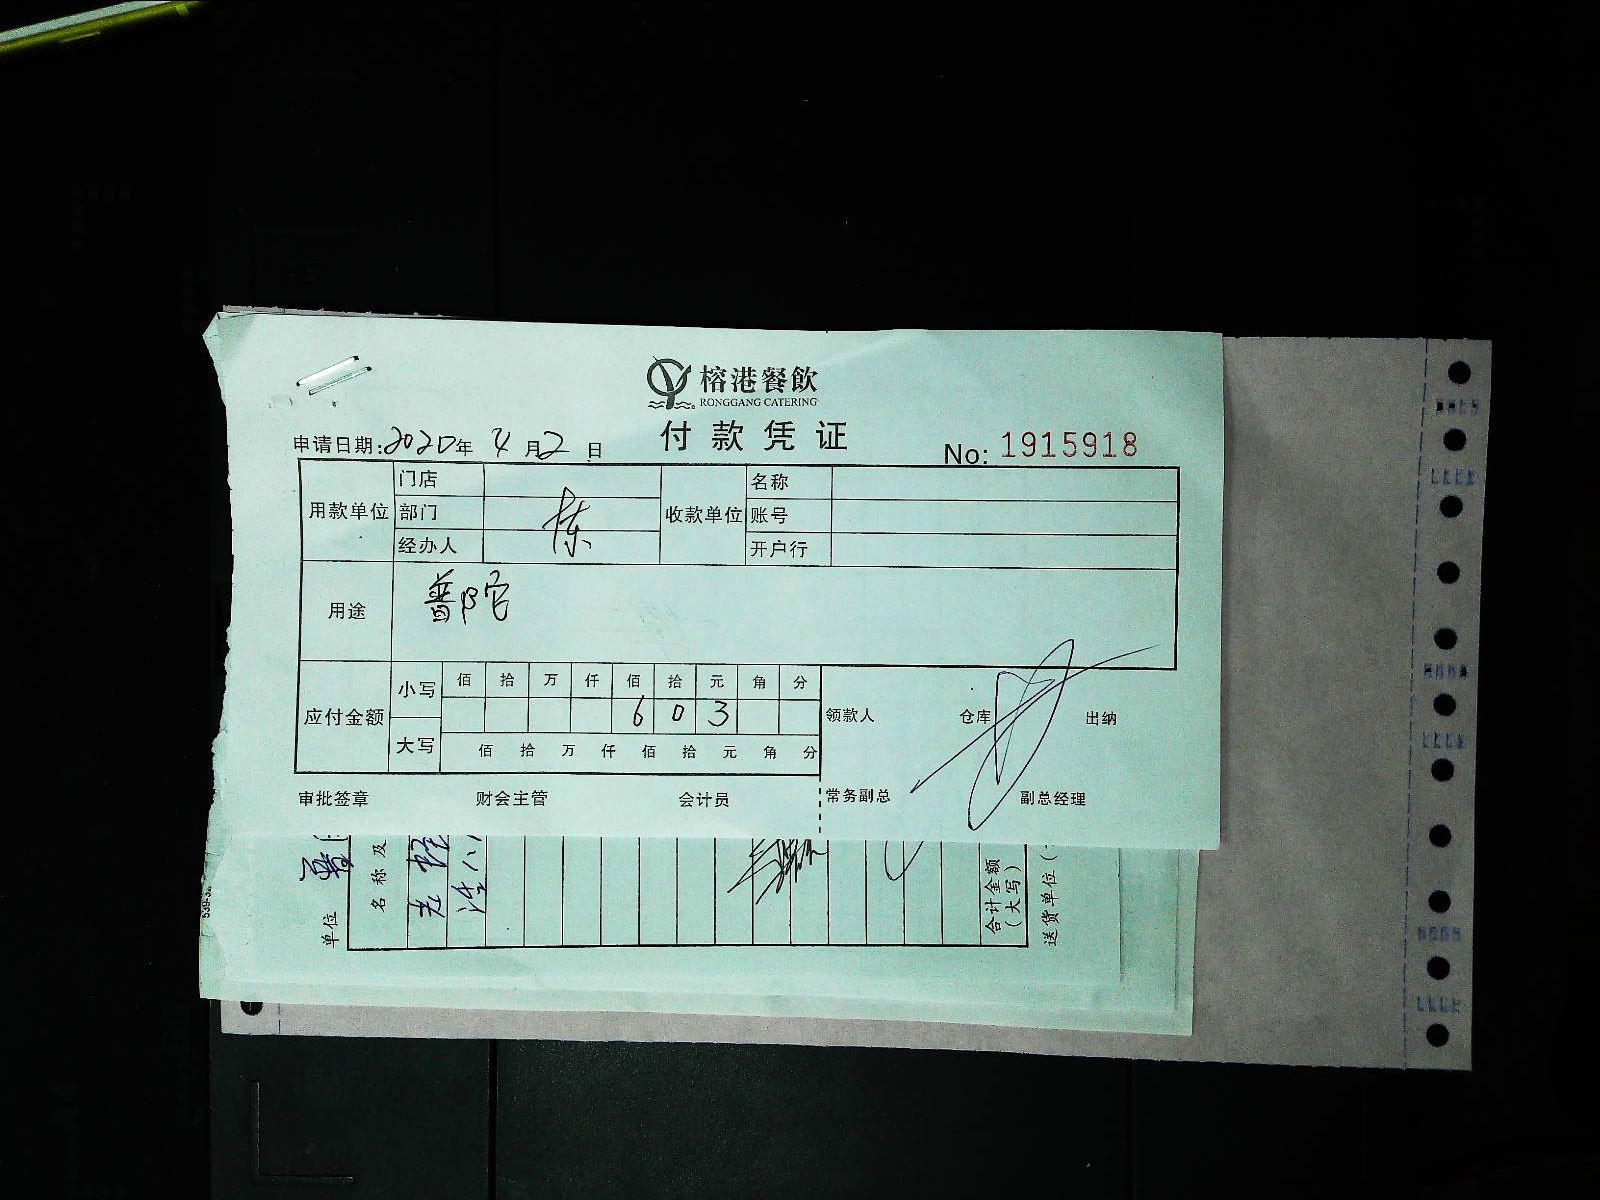 榕港餐飲
RONGGANG CATERING
付款凭证
申请日期:2020年 4月2日 No: 1915918
用款单位 门店 收款单位 名称
部门 陈 账号
经办人 开户行
用途 普陀
应付金额 小写 佰 拾 万 仟 佰 拾 元 角 分
6 0 3
大写 佰 拾 万 仟 佰 拾 元 角 分
领款人 仓库 出纳
审批签章 财会主管 会计员 常务副总 副总经理
单位
名称及
合计金额
(大写)
送货单位(